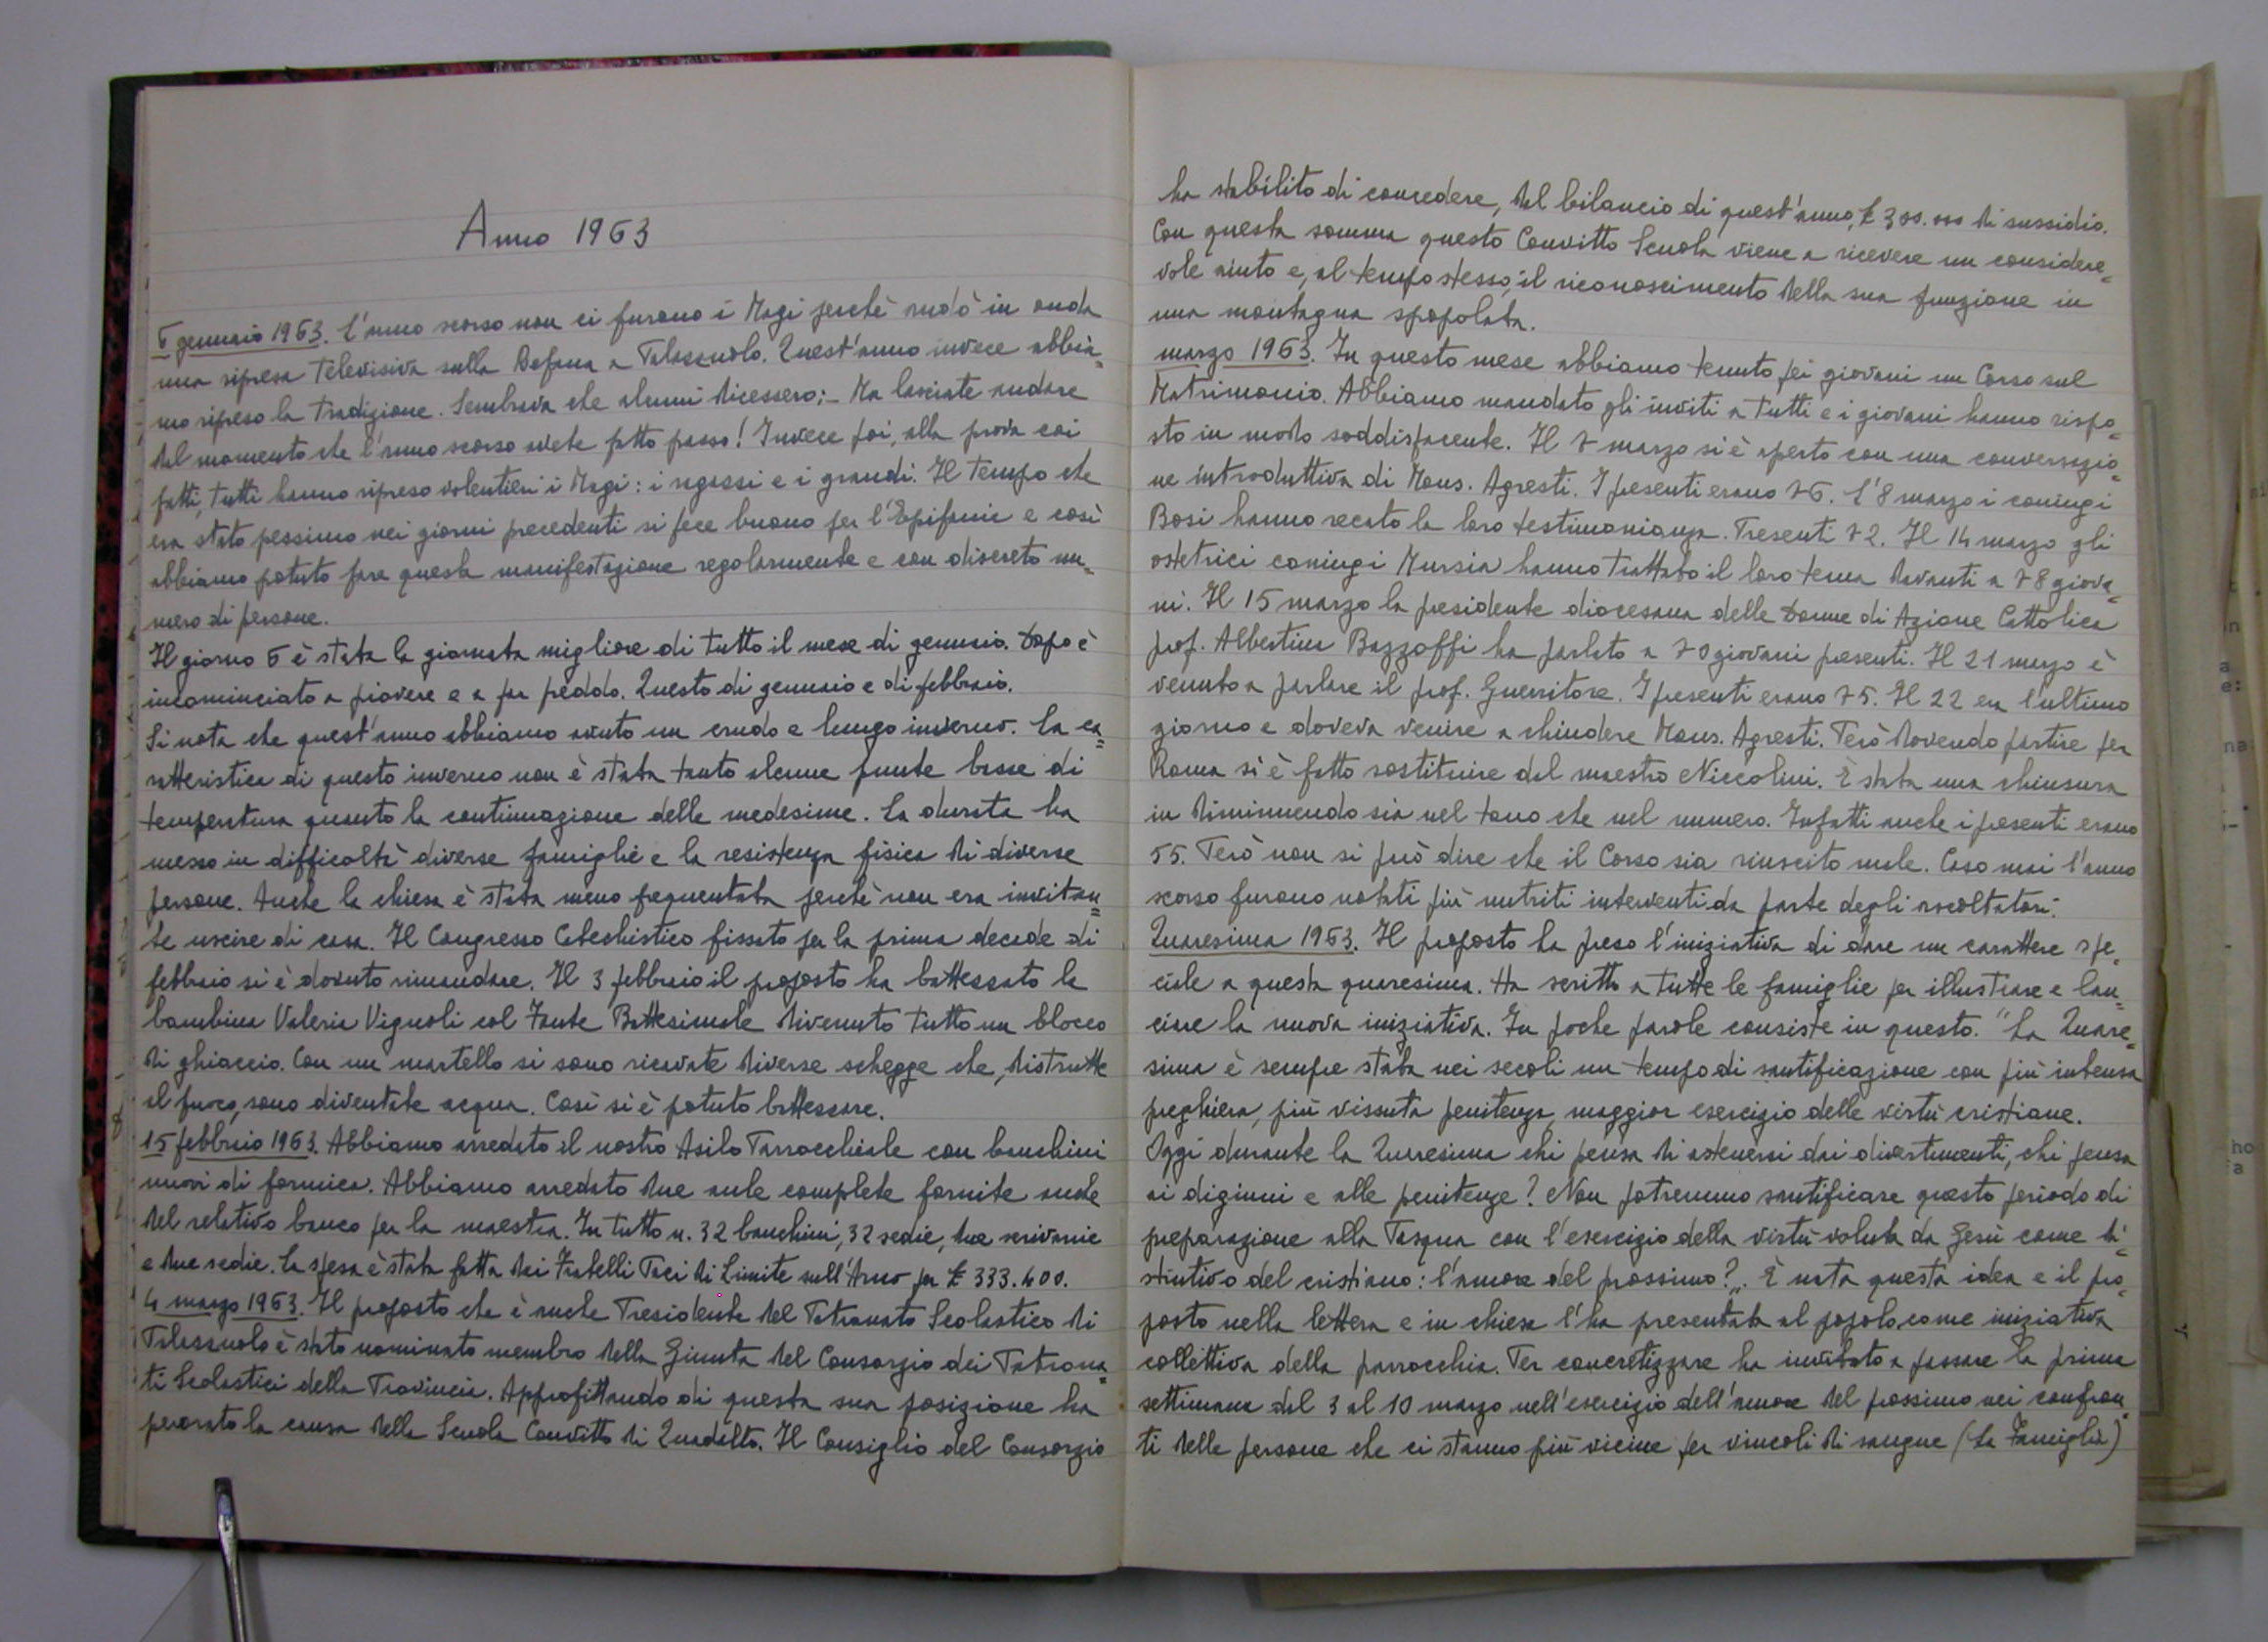 Anno 1963
6 gennaio 1963. L'anno scorso non ci furono i Magi perchè andò in onda
una ripresa Televisiva sulla Befana a Palazzuolo. Quest'anno invece abbia=
mo ripreso la Tradizione. Sembrava che alcuni dicessero: - Ma lasciate andare
dal momento che l'anno scorso avete fatto passo! Invece poi, alla prova coi
fatti, tutti hanno ripreso volentieri i Magi: i ragazzi e i grandi. Il tempo che
era stato pessimo nei giorni precedenti si fece buono per l'Epifania e così
abbiamo potuto fare questa manifestazione regolarmente e con discreto nu=
mero di persone.
Il giorno 6 è stata la giornata migliore di tutto il mese di gennaio. Dopo è
incominciato a piovere e a far freddo. Questo di gennaio e di febbraio.
Si nota che quest'anno abbiamo avuto un crudo e lungo inverno. La ca=
ratteristica di questo inverno non è stata tanto alcune punte basse di
temperatura quanto la continuazione delle medesime. La durata ha
messo in difficoltà diverse famiglie e la resistenza fisica di diverse
persone. Anche la chiesa è stata meno frequentata perchè non era invitan=
te uscire di casa. Il Congresso Catechistico fissato per la prima decade di
febbraio si è dovuto rimandare. Il 3 febbraio il proposto ha battezzato la
bambina Valeria Vignoli col Fonte Battesimale divenuto tutto un blocco
di ghiaccio. Con un martello si sono ricavate diverse schegge che, distrutte
al fuoco, sono diventate acqua. Così si è potuto battezzare.
15 febbraio 1963. Abbiamo arredato il nostro Asilo Parrocchiale con banchini
nuovi di formica. Abbiamo arredato due aule complete fornite anche
del relativo banco per la maestra. In tutto n. 32 banchini, 32 sedie, due scrivanie
e due sedie. La spesa è stata fatta dai Fratelli Paci di Limite sull'Arno per £ 333.400.
4 marzo 1963. Il proposto che è anche Presidente del Patronato Scolastico di
Palazzuolo è stato nominato membro della Giunta del Consorzio dei Patrona=
ti Scolastici della Provincia. Approfittando di questa sua posizione ha
perorato la causa della Scuola Convitto di Quadalto. Il Consiglio del Consorzio
ha stabilito di concedere, dal bilancio di quest'anno, £ 300.000 di sussidio.
Con questa somma questo Convitto Scuola viene a ricevere un considere=
vole aiuto e, al tempo stesso, il riconoscimento della sua funzione in
una montagna spopolata.
marzo 1963. In questo mese abbiamo tenuto pei giovani un Corso sul
Matrimonio. Abbiamo mandato gli inviti a tutti e i giovani hanno rispo=
sto in modo soddisfacente. Il 7 marzo si è aperto con una conversazio=
ne introduttiva di Mons. Agresti. I presenti erano 76. L'8 marzo i coniugi
Bosi hanno recato la loro testimonianza. Presenti 72. Il 14 marzo gli
ostetrici coniugi Mursia hanno trattato il loro tema davanti a 78 giova=
ni. Il 15 marzo la presidente diocesana delle Donne di Azione Cattolica
prof. Albertina Bazzoffi ha parlato a 70 giovani presenti. Il 21 marzo è
venuto a parlare il prof. Guerritore. I presenti erano 75. Il 22 era l'ultimo
giorno e doveva venire a chiudere Mons. Agresti. Però dovendo partire per
Roma si è fatto sostituire dal maestro Niccolini. È stata una chiusura
in diminuendo sia nel tono che nel numero. Infatti anche i presenti erano
55. Però non si può dire che il Corso sia riuscito male. Caso mai l'anno
scorso furono notati più nutriti interventi da parte degli ascoltatori.
Quaresima 1963. Il proposto ha preso l'iniziativa di dare un carattere spe=
ciale a questa quaresima. Ha scritto a tutte le famiglie per illustrare e lan=
ciare la nuova iniziativa. In poche parole consiste in questo. "La Quare=
sima è sempre stata nei secoli un tempo di santificazione con più intensa
preghiera, più vissuta penitenza, maggior esercizio delle virtù cristiane.
Oggi durante la Quaresima chi pensa di astenersi dai divertimenti, chi pensa
ai digiuni e alle penitenze? Non potremmo santificare questo periodo di
preparazione alla Pasqua con l'esercizio della virtù voluta da Gesù come di=
stintivo del cristiano: l'amore del prossimo?". È nata questa idea e il pro=
posto nella lettera e in chiesa l'ha presentata al popolo come iniziativa
collettiva della parrocchia. Per concretizzare ha invitato a passare la prima
settimana dal 3 al 10 marzo nell'esercizio dell'amore del prossimo nei confron=
ti delle persone che ci stanno più vicine per vincoli di sangue (La Famiglia)